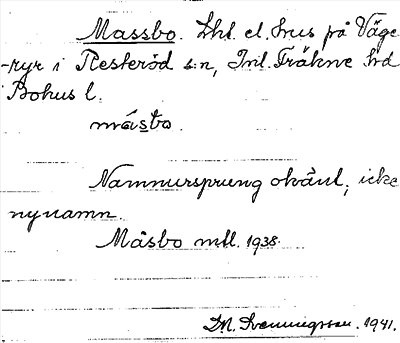 Massbo. Lht. el. hus på Väge
-ryr i Resteröd s:n, Inl. Fräkne hrd
Bohus l.
måsbo.
Namnursprung okänt, icke
nynamn.
Måsbo mtl. 1938.
M. Svenningsson. 1941.